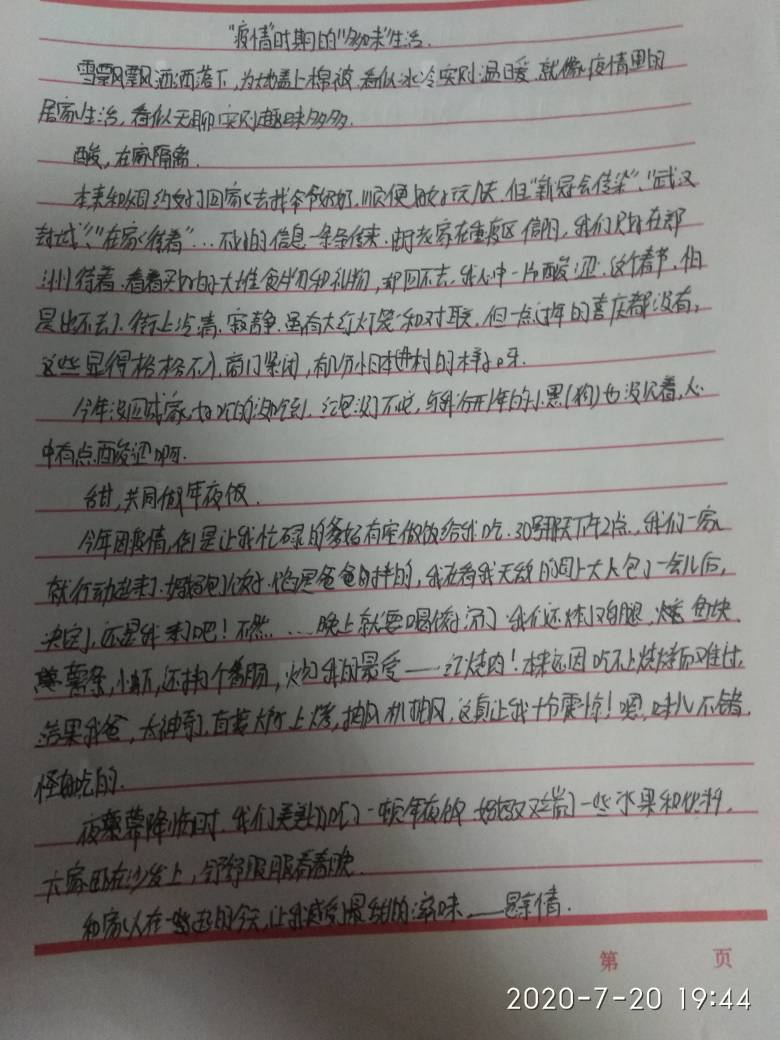 "疫情"时期的"多味"生活.
雪飘飘洒洒落下,为大地盖上棉被,看似冰冷实则温暖.就像疫情里的
居家生活,看似无聊实则趣味多多.
酸,在家隔离.
本来和姐约好了回家去找爷爷奶奶.顺便好好玩几天.但"新冠会传染"、"武汉
封城"、"在家待着"…不好的信息一条条传来.由于老家在重疫区信阳,我们只好在郑
州待着.看着买好的大堆食物和礼物,却回不去.我心中一片酸涩.这个春节,怕
是出不去了.街上冷清、寂静.虽有大红灯笼和对联,但一点过年的喜庆都没有,
这些显得格格不入.商门紧闭,有几分小日本进村的样子呀.
今年没回成家,好吃的没吃到.红包没了不说,与我分开1年的小黑(狗)也没见着,心
中有点酸涩啊.
甜,共同做年夜饭.
今年因疫情,倒是让我忙碌的爹妈有空做饭给我吃.30号那天下午2点,我们一家
就行动起来了.妈妈包饺子.馅是爸爸拌的,我在看我无敌的周大人包了一会儿后,
决定,还是我来吧!不然……晚上就要喝汤了.我们还炸了鸡腿,鱼块
薯条,小酥,还有个香肠,我的最爱——红烧肉!本来还因吃不上烧烤而难过,
结果我爸,太神奇了,直接大火上烤,抽风机抽风,这真让我十分震惊!嗯,味儿不错,
怪好吃的.
夜幕降临时.我们美美地吃了一顿年夜饭.妈妈又端了一些水果和饮料.
大家围在沙发上,舒舒服服看春晚.
和家人在一起的今天,让我感受到最甜的滋味——是亲情.
第 页
2020-7-20 19:44